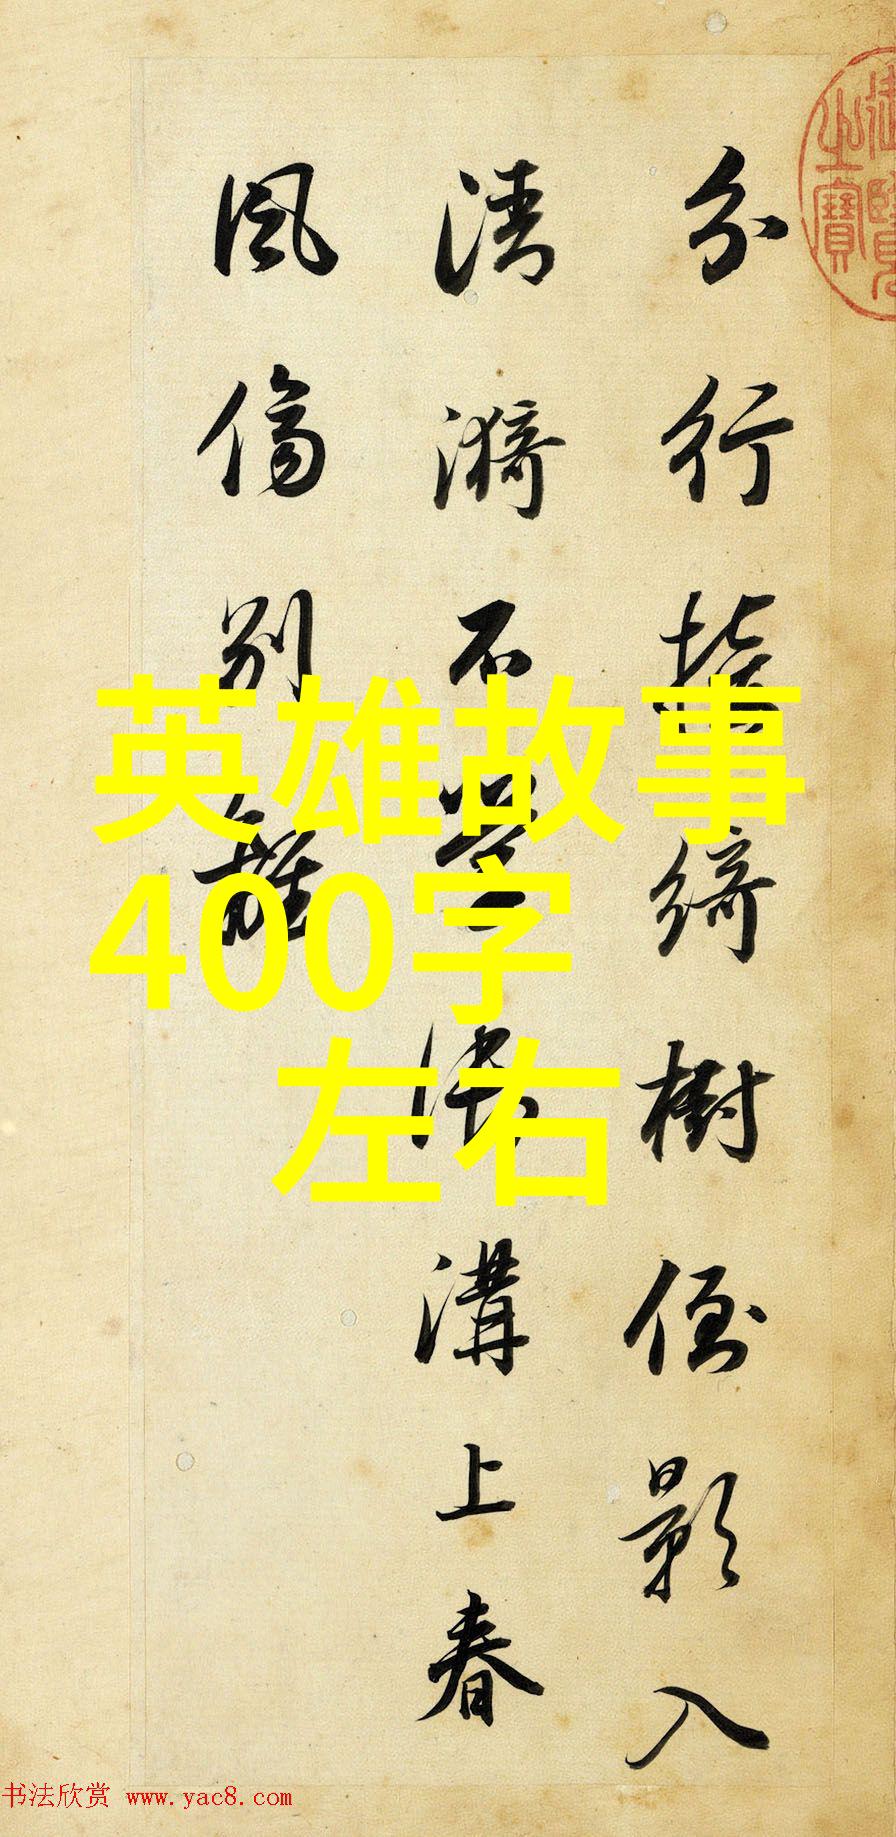 分行接綺樹倒影入
清漪不學御溝上春
風傷別離
英雄故事
400字
左右
御覽之寶
书法欣赏 www.yac8.com